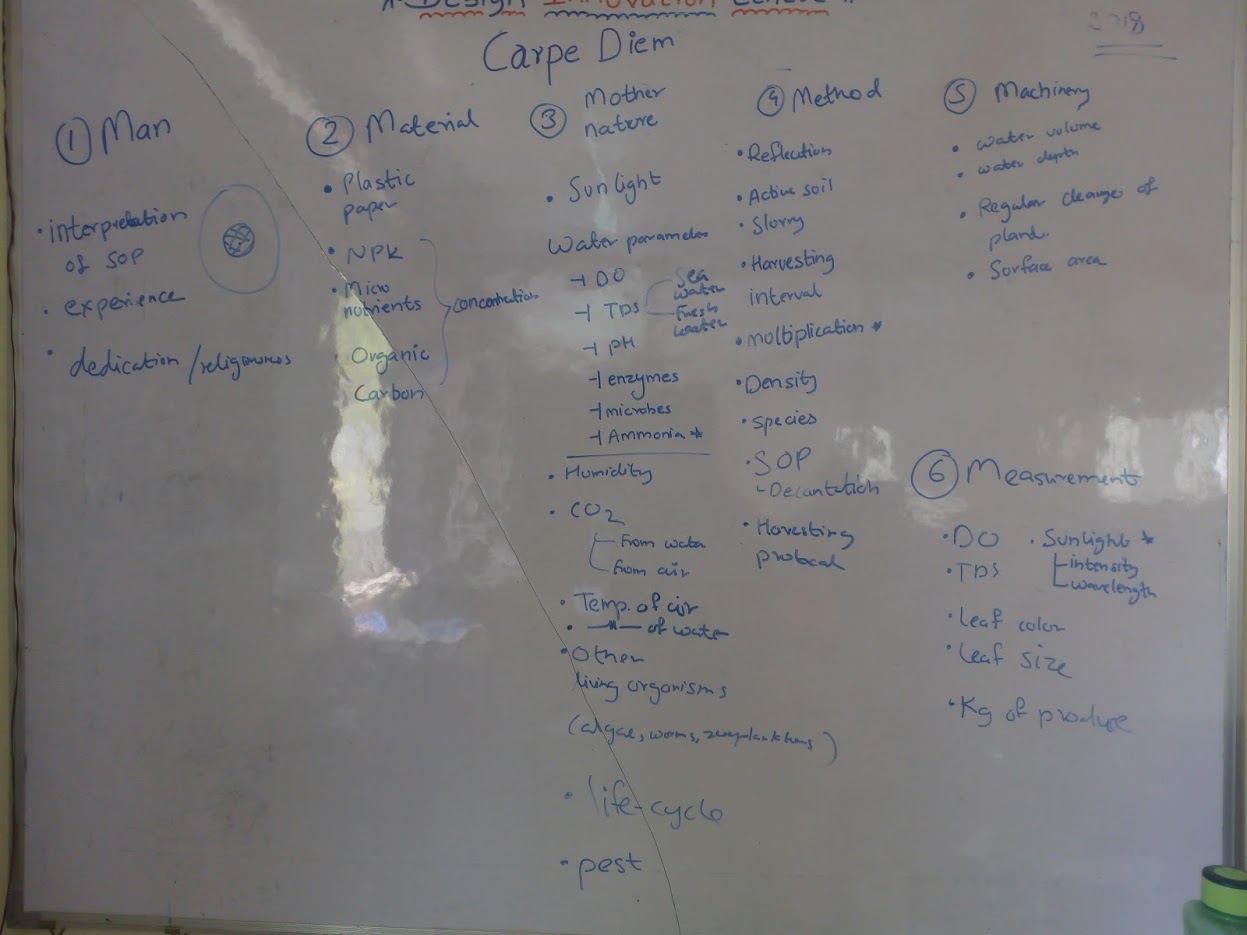 Design Innovation Centre
Carpe Diem
2018
① Man
• interpretation
of SOP
• experience
• dedication /
② Material
• Plastic
paper
• NPK
• Micro
nutrients
• Organic
Carbon
concentration
③ Mother
nature
• Sunlight
Water parameter
DO
TDS
Sea
water
Fresh
water
PH
enzymes
microbes
Ammonia *
• Humidity
• CO2
From water
From air
• Temp. of air
• —〃— of water
• Other
living organisms
(algae, worms, zooplanktons)
• life-cycle
• pest
④ Method
• Reflection
• Active soil
• Slurry
• Harvesting
interval
• multiplication *
• Density
• species
• SOP
Decantation
• Harvesting
⑤ Machinery
• water volume
• water depth
• Regular cleange of
• Surface area
⑥ Measurement
• DO
• TDS
• Sunlight *
intensity
wavelength
• Leaf color
• Leaf size
• Kg of produce